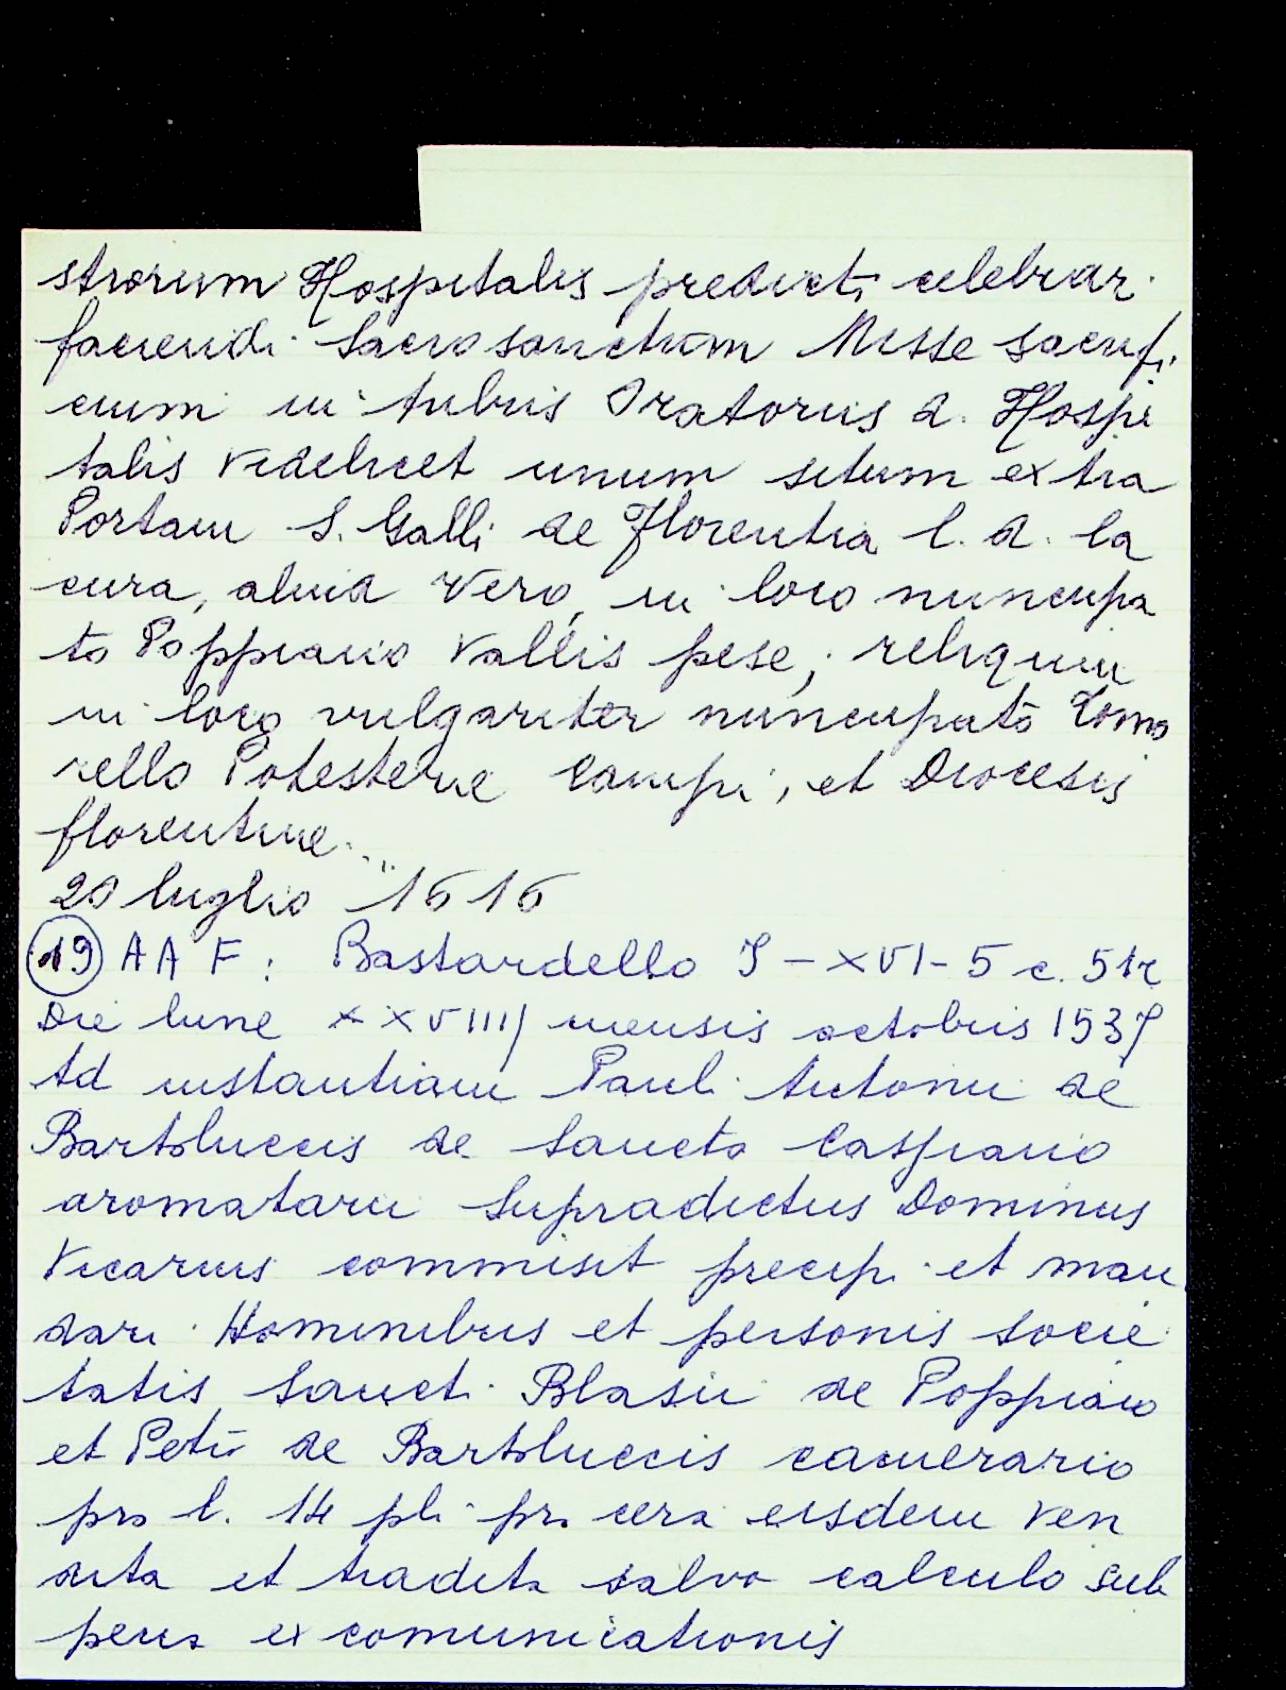 strorum Hospitalis predicti celebrar.
faciendi Sacrosanctum Messe sacrifi
cium in tribus Oratoriis d. Hospi
talis videlicet unum situm extra
Portam S. Galli de Florentia l. d. la
cura, aliud vero, in loco nuncupa
to Poppiano Vallis pese; reliquum
in loco vulgariter nuncupato
rello Potesterie Campi, et Diocesis
florentine..."
20 luglio 1616
(19) AAF: Bastardello I-XVI-5 c. 51r
Die lune XXVIIIJ mensis octobris 1537
Ad instantiam Pauli Antonii de
Bartoluccis de Sancto Casciano
aromatarii Supradictus Dominus
Vicarius commisit precipi et man
dari Hominibus et personis socie
tatis Sancti Blasii de Poppiano
et Petri de Bartoluccis camerario
pro l. 14 pli pro cera eisdem ven
dita et tradita salvo calculo sub
pena excomunicationis